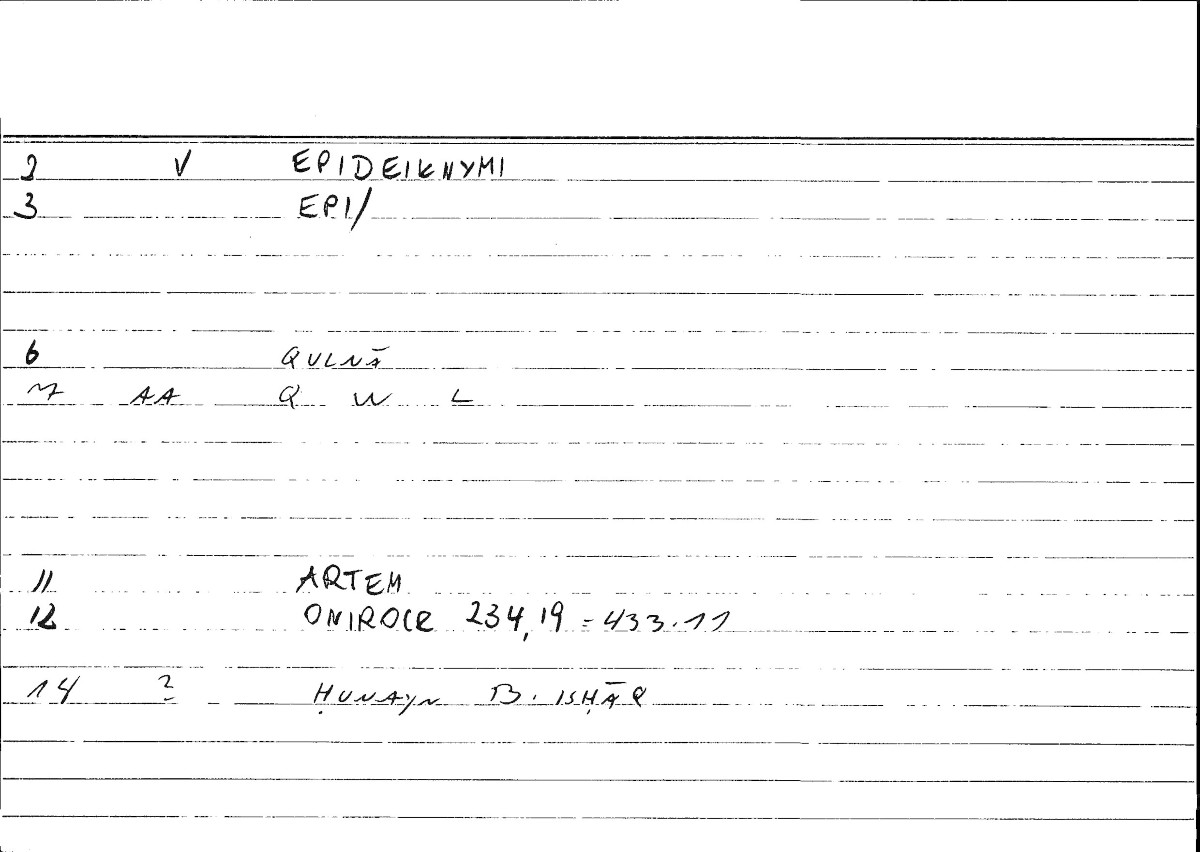 2 V EPIDEIKNYMI
3 EPI/
6 QULNĀ
7 AA Q W L
11 ARTEM
12 ONIROCR 234,19 = 433.11
14 ? ḤUNAYN B. ISḤĀQ